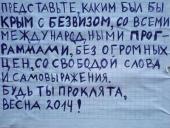 ПРЕДСТАВЬТЕ, КАКИМ БЫЛ БЫ
КРЫМ С БЕЗВИЗОМ, СО ВСЕМИ
МЕЖДУНАРОДНЫМИ ПРОГ-
РАММАМИ, БЕЗ ОГРОМНЫХ
ЦЕН, СО СВОБОДОЙ СЛОВА
И САМОВЫРАЖЕНИЯ.
БУДЬ ТЫ ПРОКЛЯТА,
ВЕСНА 2014!